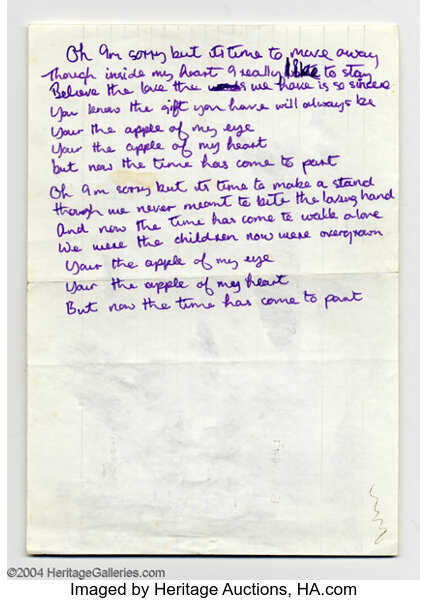 Oh Im sorry but its time to move away
Though inside my heart I really like to stay
Believe the love the we have is so sincere
You know the gift you have will always be
Your the apple of my eye
Your the apple of my heart
but now the time has come to part
Oh Im sorry but its time to make a stand
though we never meant to bite the loving hand
And now the time has come to walk alone
We were the children now were overgrown
Your the apple of my eye
Your the apple of my heart
But now the time has come to part
©2004 HeritageGalleries.com
Imaged by Heritage Auctions, HA.com